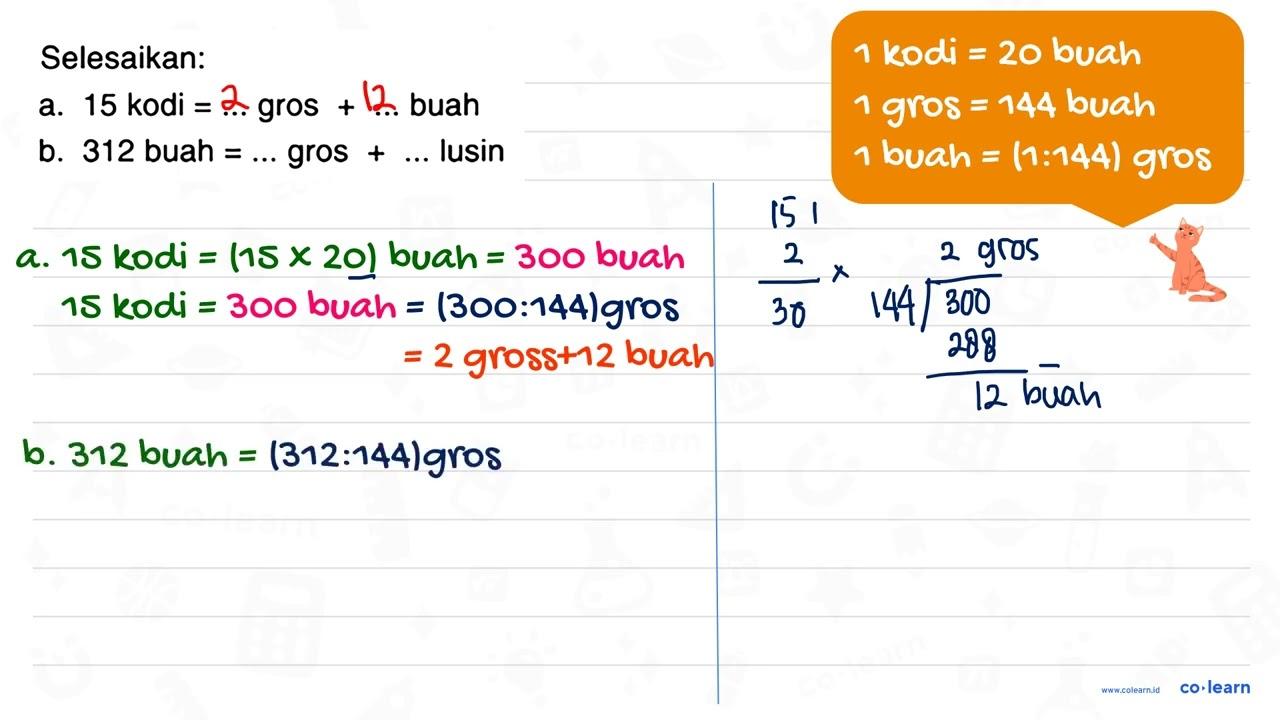 Selesaikan:
a. 15 kodi = 2 gros + 12 buah
b. 312 buah = ... gros + ... lusin
1 kodi = 20 buah
1 gros = 144 buah
1 buah = (1:144) gros
a. 15 kodi = (15 x 20) buah = 300 buah
15 kodi = 300 buah = (300:144)gros
= 2 gross+12 buah
b. 312 buah = (312:144)gros
15 1
2
x
30
2 gros
144 300
288
-
12 buah
co-learn
www.colearn.id co·learn